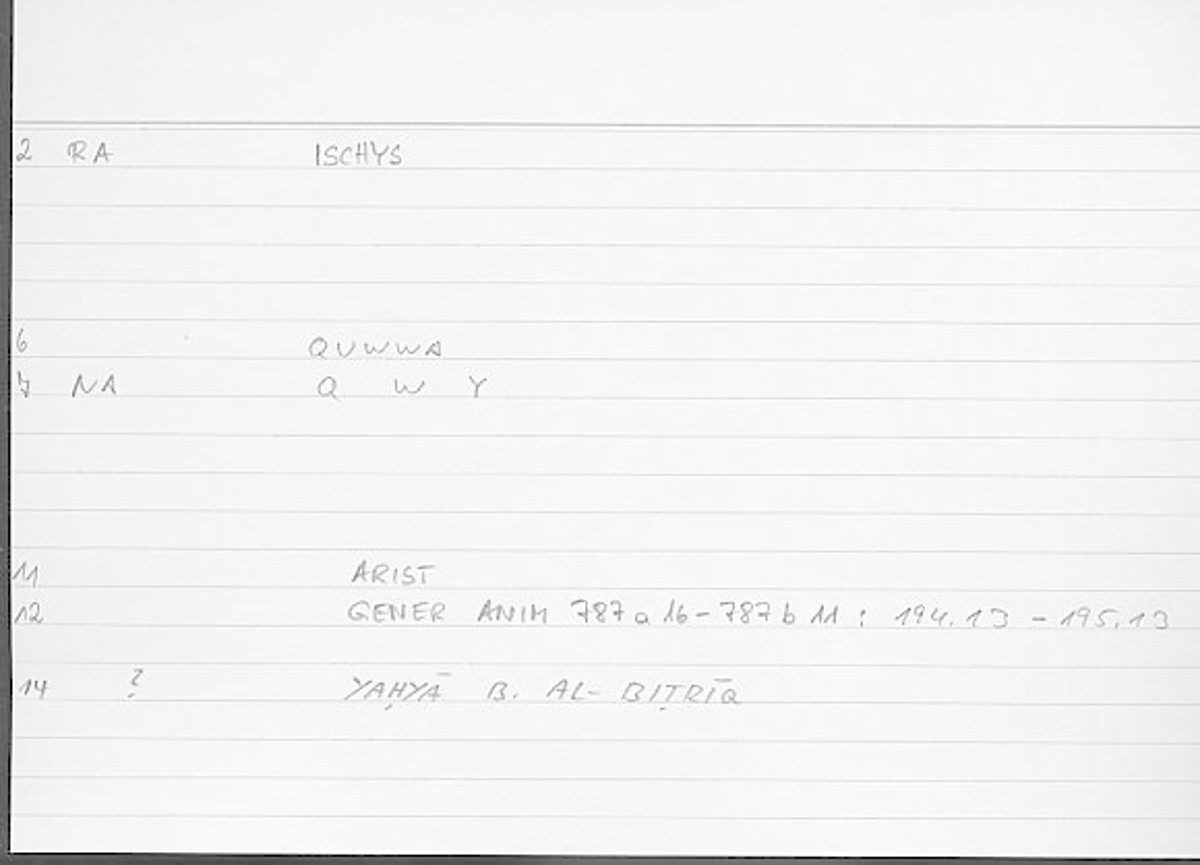 2 RA ISCHYS
6 QUWWA
7 NA Q W Y
11 ARIST
12 GENER ANIM 787 a 16 - 787 b 11 : 194.13 - 195.13
14 ? YAḤYĀ B. AL-BIṬRĪQ